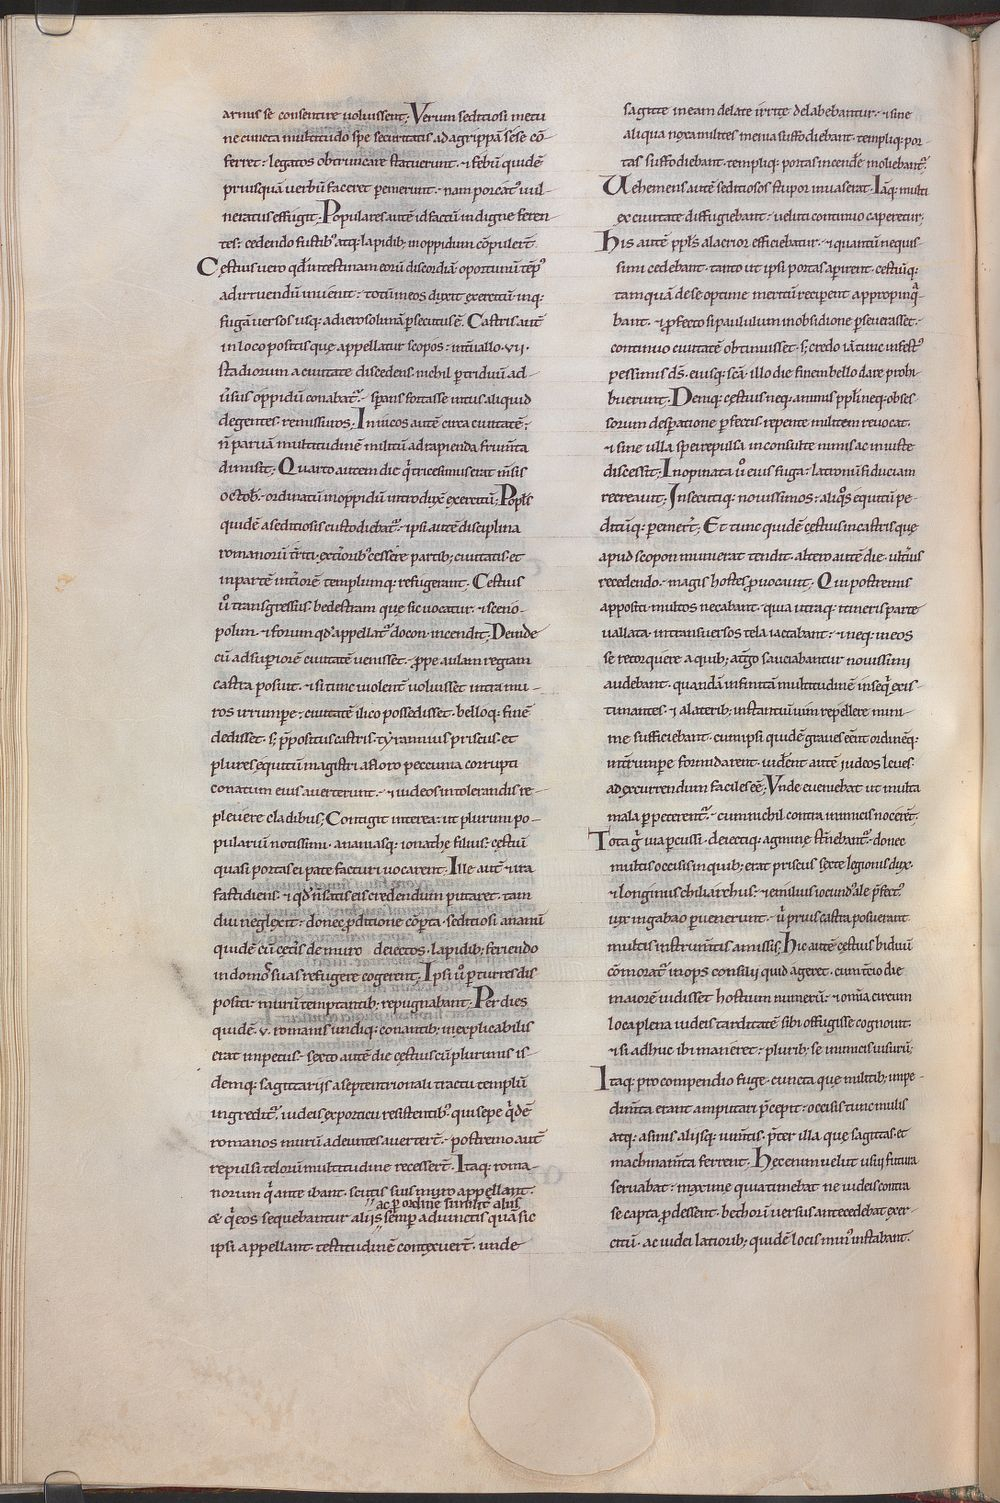 armis se consentire voluissent; Verum seditiosi metu
ne cuncta multitudo spe securitatis ad agrippā sese cō-
ferret: legatos obtruncare statuerunt. & febū quidē
priusquā uerbū faceret pemerunt. nam porcat᾽ uul-
neratus effugit. Populares autē id factū indigne feren-
tes: cedendo fustib᾽ atq; lapidib; in oppidum cōpulert̄.
Cęstius uero qd̄ intestinam eorū discordiā oportunū tēp᾽
adirruendū inuenit: totū in eos duxit exercitū. inq;
fugā uersos usq; ad ierosolimā psecutus ē. Castris aut̄
in loco positis que appellatur scopos: int̄uallo .vii.
stadiorum a ciuitate discedens. nichil p triduū ad-
ūsus oppidū conabat᾽. spans fortasse intus aliquid
degentes remissuros; In uicos autē circa ciuitatē:
n̄ paruā multitudinē militū ad rapienda frum̄ta
dimisit; Quarto autem die q̄ tricesimus erat m̄sis
octob. ordinatū in oppidū introduxē exercitū; Popl̄s
quidē a seditiosis custodiebat᾽. ipsi autē disciplina
romanorū t̄riti. ext̄iorib᾽ cessere partib; ciuitatis et
in partē int̄iorē templumq; refugerant. Cestius
ū transgressus. bedestram que sic uocatur. & sceno-
polim. & forum qd᾽ appellat᾽ docon. incendit; Deinde
cū ad supiorē ciuitatē uenisset. ppe aulam regiam
castra posuit. & si tunc uiolent̄ uoluisset intra mu-
ros irrumpe: ciuitatē ilico possedisset. belloq; finē
dedisset. s; p̄positus castris. tyrannius priscus. et
plures equitum magistri a floro peccunia corrupti
conatum eius auerterunt. & iudeos intolerandis re-
pleuere cladibus; Contigit interea: ut plurimi po-
pularium notissimi. anamasq; ionathe filius. cęstiū
quasi portas ei pate facturi uocarent. Ille aut̄ & ira
fastidiens. & qd᾽ n̄ satis eis credendum putaret. tam
diu neglexit: donec pditione cōpta. seditiosi ananū
quidē cū cęt̄is de muro deiectos. lapidib; feriendo
in domo suas refugere cogerent. Ipsi ū p turres dis
positi. murū temptantib; repugnabant. Per dies
quidē .v. romanis undiq; conantib; inexplicabilis
erat impetus. sexto autē die cęstius cū plurimis is-
demq; sagittarijs a septentrionali tractu templū
ingredit᾽. iudeis ex porticu resistentib᾽. qui sepe q̄dē
romanos murū adeuntes auertert̄. postremo aut̄
repulsi telorū multitudine recessert̄. Itaq; roma-
norum q̄ ante ibant. scutis suis muro appellant:
ac p ordine simil̄t alijs
& q̄ eos sequebantur alijs semp adiunctis quā sic
ipsi appellant. testitudinē contexuert̄. unde
sagitte in eam delate irrite delabebantur. & sine
aliqua noxa milites menia suffodiebant. templiq; por-
tas suffodiebant. templiq; portas incend̄e moliebant᾽.
Uehemens autē seditiosos stupor inuaserat. Iāq; multi
ex ciuitate diffugiebant: ueluti continuo caperetur;
His autē ppl̄s alacrior efficiebatur. & quantū nequis-
simi cedebant. tanto ut ipsi portas apirent. cęstiūq;
tamquā de se optime meritū recipent appropinq̄-
bant. & pfecto si paululum in obsidione pseuerasset.
continuo ciuitatē obtinuisset. s; credo iā tunc infest᾽
pessimis ds̄. eiusq; scā. illo die finem bello dare prohi
buerunt. Deniq; cęstius neq; animis ppl̄i neq; obses
sorum despatione pfectis. repente militem reuocat.
& sine ulla spei repulsa inconsulte nimis ac iniuste
discessit; Inopinata ū eius fuga: latronū fiduciam
recreauit; Insecutiq; nouissimos: aliq̄s equitū pe-
ditūq; pemert̄; Et tunc quidē cęstius in castris que
apud scopon munierat tendit. altero autē die. ult̄ius
recedendo. magis hostes puocauit; Qui postremis
appositi multos necabant. quia utraq; itineris parte
uallata. in transuersos tela iactabant: & neq; in eos
se retorquere a quib; at̄go sauciabantur nouissimi
audebant. quandā infinitā multitudinē inseq̄ exis-
timantes. & a laterib; instantiū uim repellere mini-
me sufficiebant. cum ipsi quidē graues eēnt ordinēq;
int̄rumpe formidarent. uid̄ent autē iudeos leues.
ad excurrendum faciles eē; Vnde eueniebat ut multa
mala ppeterent᾽. cum nichil contra inimicis nocerēt;
Tota g᾽ uia percussi. deiectiq; agmine st̄nebant᾽. donec
multis occisis in quib; erat priscus sexte legionis dux.
& longinus chiliarchus. & emilius iocund᾽ ale p̄fect᾽
uix in gabao puenerunt. ū prius castra posuerant.
multis instrum̄tis amissis; Hic autē cęstius biduū
cōmorat᾽ inops consilij quid ageret. cum t̄cio die
maiorē uidisset hostium numerū. & om̄ia circum
loca plena iudeis. tarditatē sibi offugisse cognouit.
& si adhuc ibi maneret: plurib; se inimicis usurū;
Itaq; pro compendio fuge. cuncta que multib; impe-
dim̄ta erant amputari p̄cepit. occisis tunc mulis
atq; asinis alijsq; uim̄tis. p̄ter illa que sagittas et
machinam̄ta ferrent. Hęc enim uelut usui futura
seruabat: maxime quia timebat ne iudeis contra
se capta pdessent. bethorū uersus antecedebat exer-
citū. ac iudei latiorib; quidē locis min᾽ instabant.